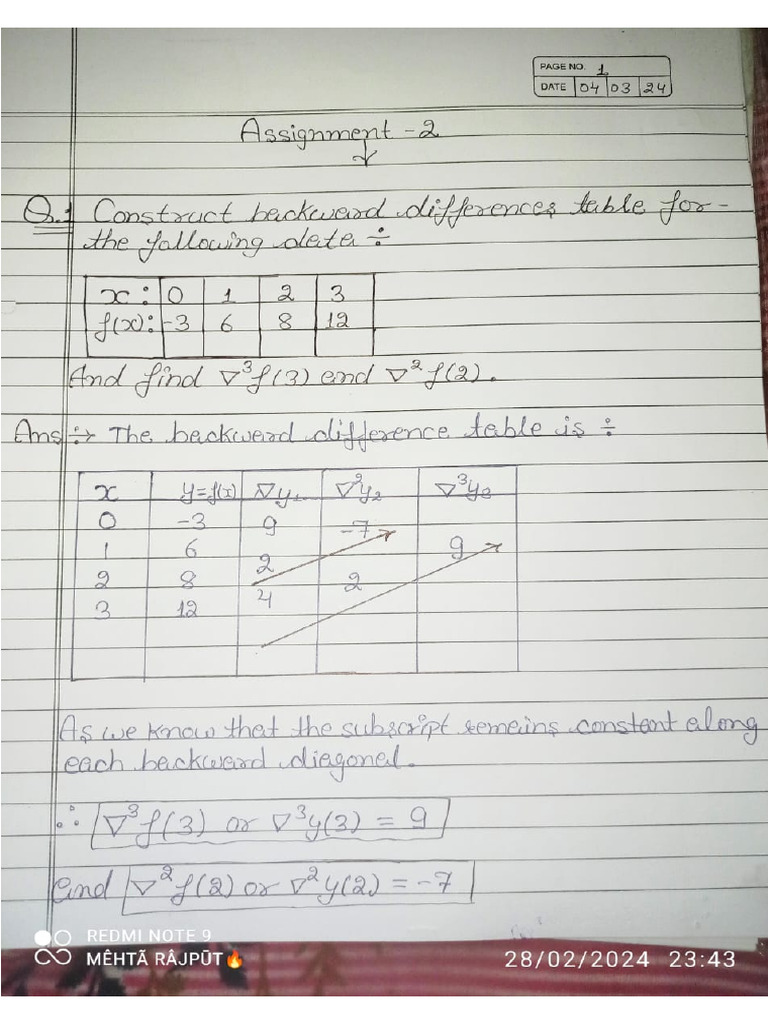 PAGE NO. 1
DATE 04 03 24
Assignment - 2
Q.1 Construct backward differences table for
the following data ÷
x : 0 1 2 3
f(x): -3 6 8 12
And find ∇³f(3) and ∇²f(2).
Ans ÷→ The backward difference table is ÷
x y=f(x) ∇y₁ ∇²y₂ ∇³y₃
0 -3 9 -7
1 6 2 9
2 8 4 2
3 12
As we know that the subscript remains constant along
each backward diagonal.
∴ ∇³f(3) or ∇³y(3) = 9
and ∇²f(2) or ∇²y(2) = -7
REDMI NOTE 9
MÊHTÃ RÂJPŪT🔥
28/02/2024 23:43